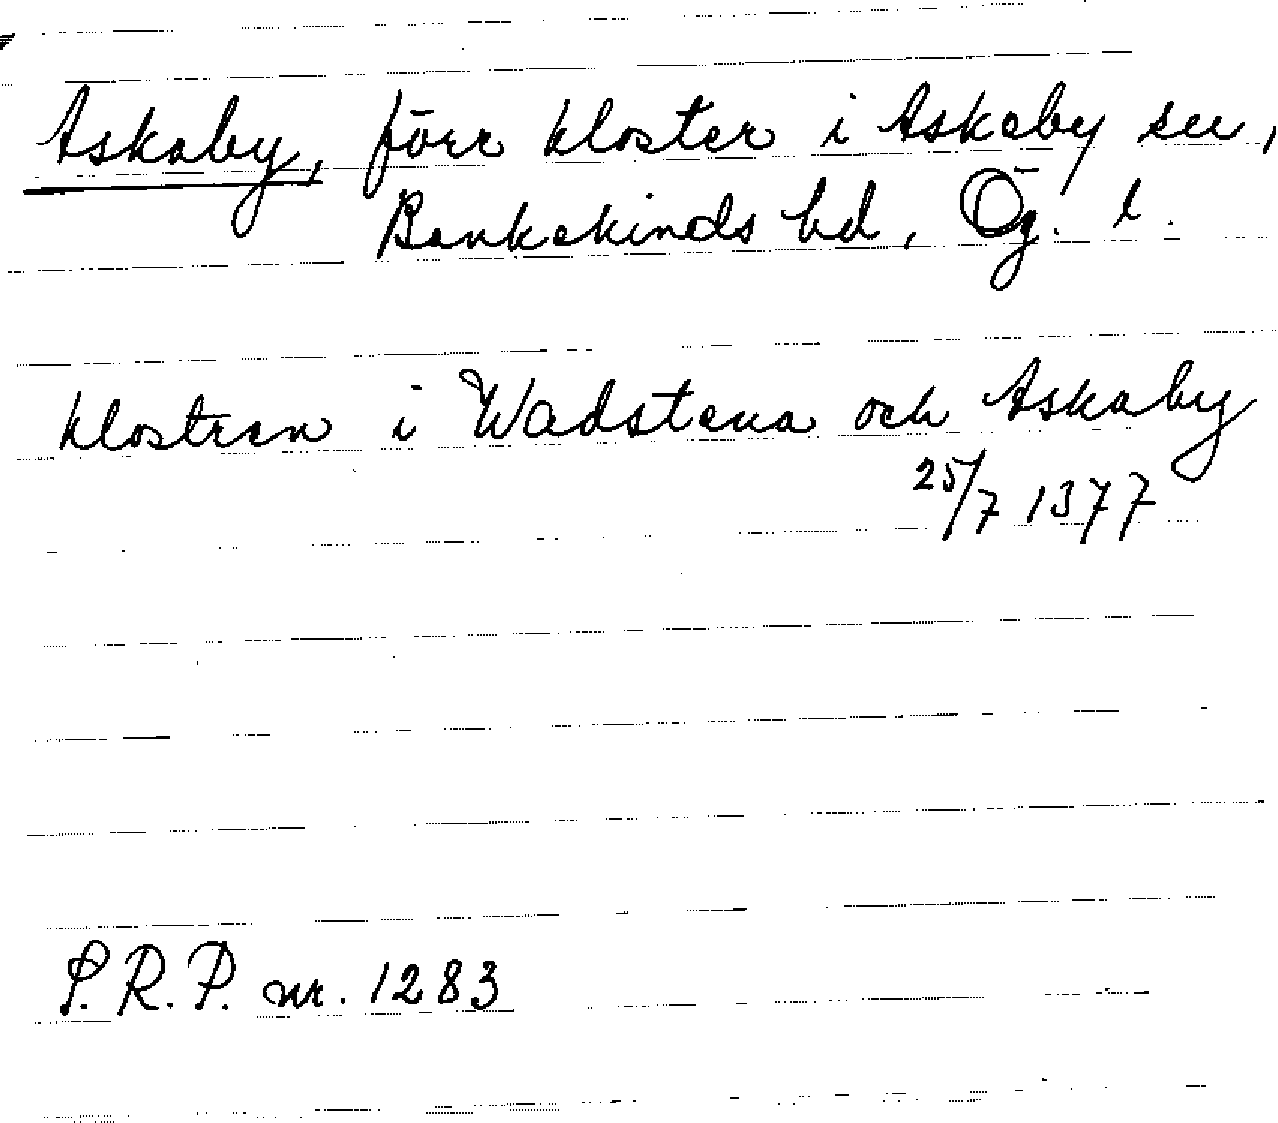 Askaby, förr kloster i Askeby sn,
Bankekinds hd, Ög. l.
klostren i Wadstena och Askaby
25/7 1377
S.R.P. nr. 1283